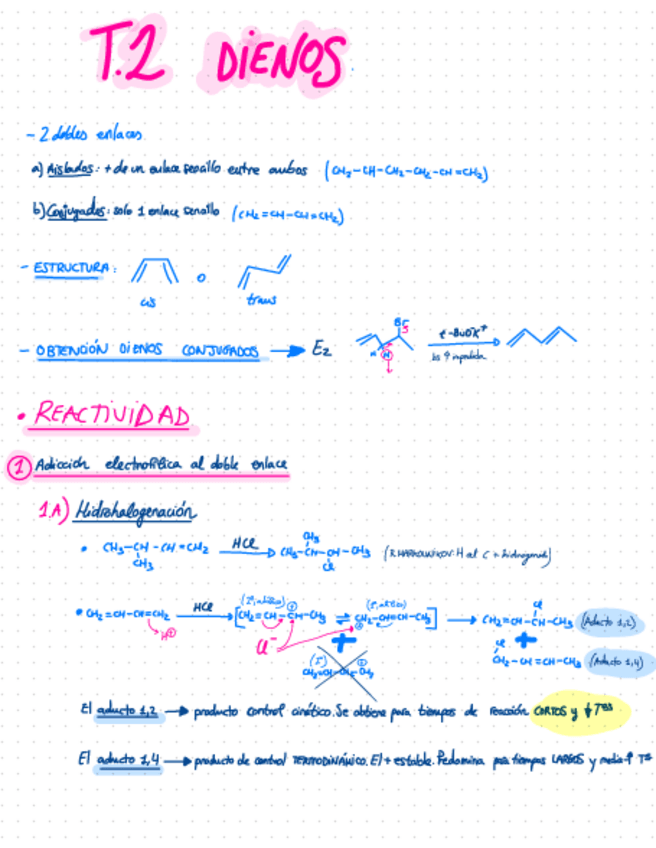 T.2 DIENOS
- 2 dobles enlaces
a) Aislados: + de un enlace sencillo entre ambos (CH2-CH-CH2-CH2-CH=CH2)
b) Conjugados: solo 1 enlace sencillo (CH2=CH-CH=CH2)
- ESTRUCTURA: o
cis trans
- OBTENCIÓN DIENOS CONJUGADOS → E2 Br H t-BuO⁻K⁺
• REACTIVIDAD
① Adicción electrofílica al doble enlace
1.A) Hidrohalogenación
• CH3-CH-CH=CH2 HCl → CH3-CH-CH-CH3
CH3 CH3 Cl
• CH2=CH-CH=CH2 HCl → [CH2=CH-CH-CH3 ⇌ CH2-CH=CH-CH3] → CH2=CH-CH-CH3 (Aducto 1,2)
H⊕ Cl⁻ + Cl +
Cl
CH2-CH=CH-CH3 (Aducto 1,4)
El aducto 1,2 → producto control cinético. Se obtiene para tiempos de reacción CORTOS y ↓ Tas
El aducto 1,4 → producto de control TERMODINÁMICO. El + estable. Predomina para tiempos LARGOS y media-↑ Tª